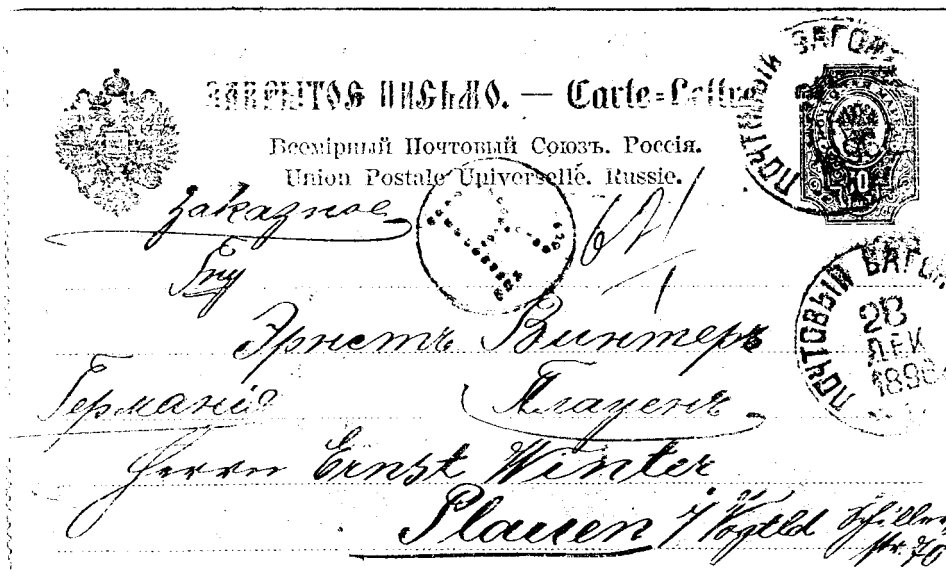 ЗАКРЫТОЕ ПИСЬМО. — Carte-Lettre
Всемірный Почтовый Союзъ. Россія.
Union Postale Universelle. Russie.
Заказное
Гну
Эрнстъ Винтеръ
Германія Плауенъ
Herrn Ernst Winter
Plauen i/Vogtld Schiller
str. 70
ПОЧТОВЫЙ ВАГОН
10
ПОЧТОВЫЙ ВАГОН
28
ДЕК